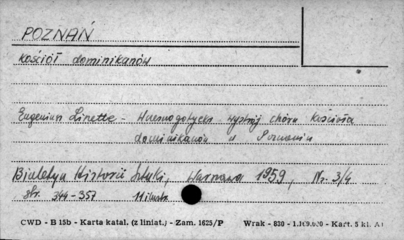 POZNAŃ
kościół dominikanów
Eugeniusz Linette - wystrój chóru kościoła
dominikanów w Poznaniu
Biuletyn Historii Sztuki, Warszawa 1959, Nr. 3/4
str. 344-357
CWD - B 15b - Karta katal. (z liniat.) - Zam. 1625/P Wrak - 830 - Kart. 5 kl.